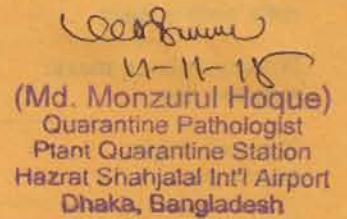 11-11-18
(Md. Monzurul Hoque)
Quarantine Pathologist
Plant Quarantine Station
Hazrat Shahjalal Int'l Airport
Dhaka, Bangladesh